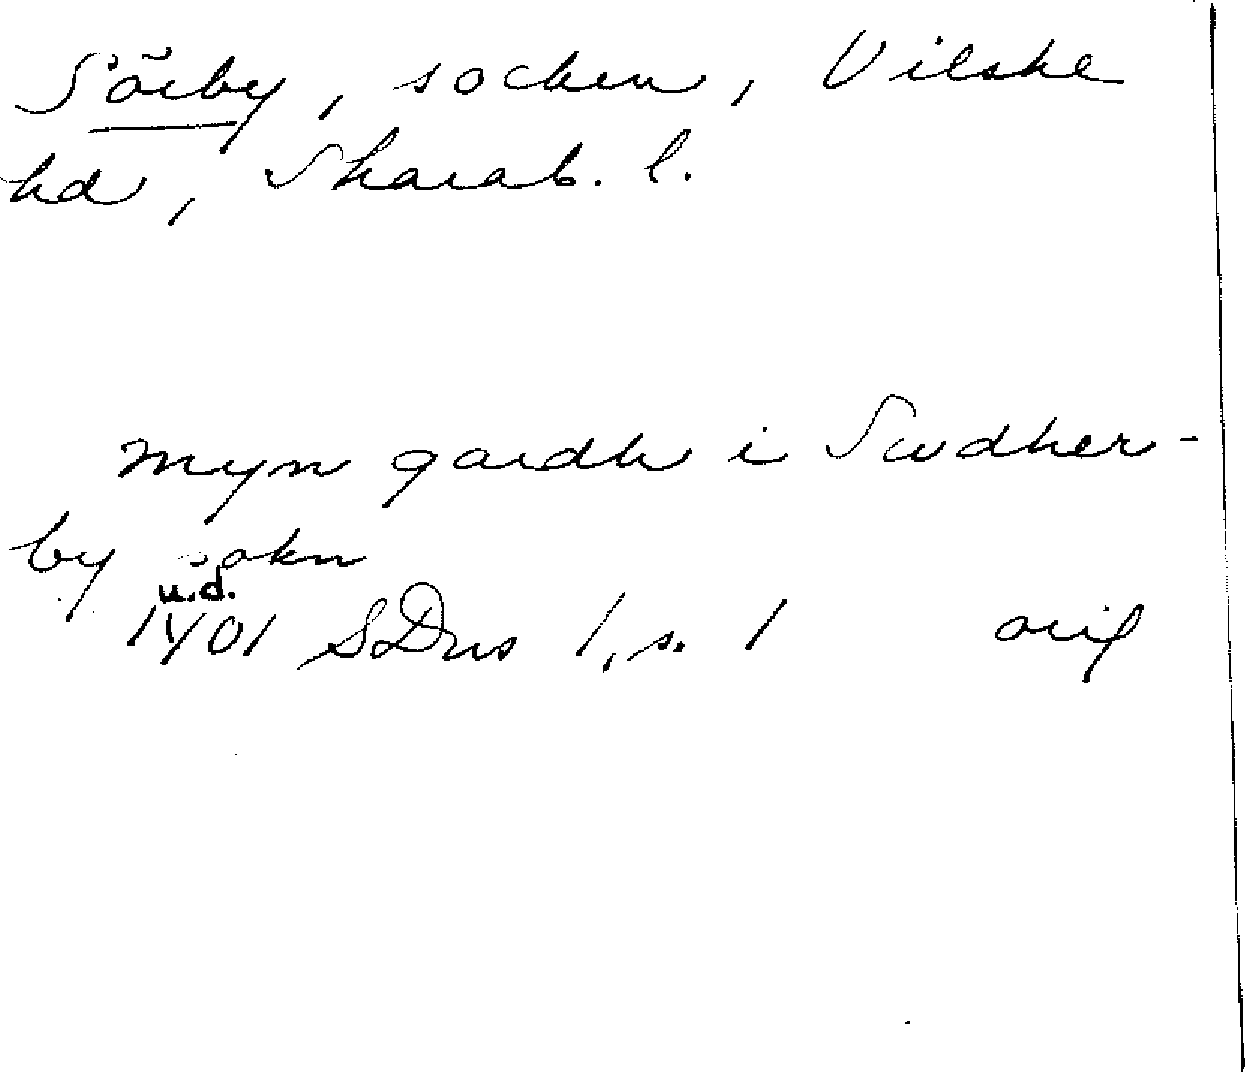 Sörby, socken, Vilske
hd, Skarab. l.
myn gardh i Swdher-
by sokn
u.d.
1401 SDns 1, s. 1 orig